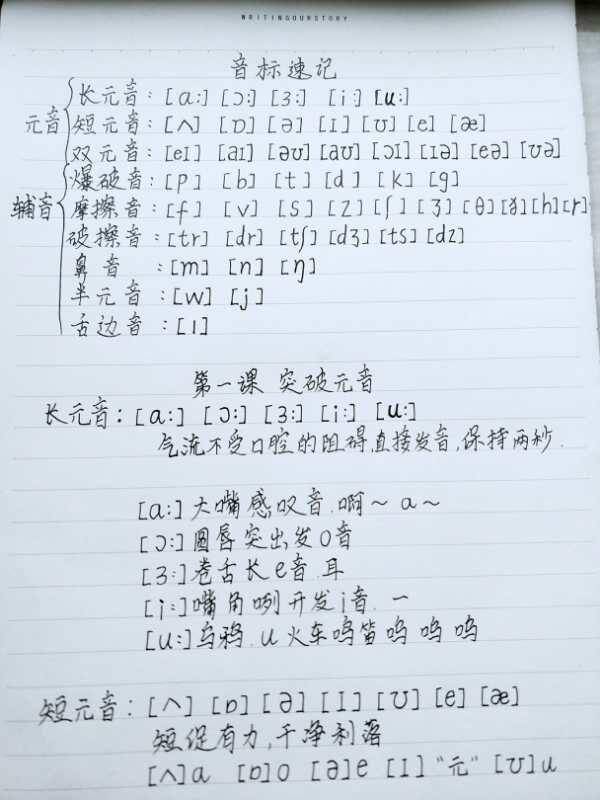 WRITINGOURSTORY
音标速记
元音 长元音：[ɑː] [ɔː] [ɜː] [iː] [uː]
短元音：[ʌ] [ɒ] [ə] [ɪ] [ʊ] [e] [æ]
双元音：[eɪ] [aɪ] [əʊ] [aʊ] [ɔɪ] [ɪə] [eə] [ʊə]
辅音 爆破音：[p] [b] [t] [d] [k] [g]
摩擦音：[f] [v] [s] [z] [ʃ] [ʒ] [θ] [ð] [h] [r]
破擦音：[tr] [dr] [tʃ] [dʒ] [ts] [dz]
鼻音：[m] [n] [ŋ]
半元音：[w] [j]
舌边音：[l]
第一课 突破元音
长元音：[ɑː] [ɔː] [ɜː] [iː] [uː]
气流不受口腔的阻碍,直接发音,保持两秒.
[ɑː] 大嘴感叹音.啊～ a～
[ɔː] 圆唇突出发o音
[ɜː] 卷舌长e音.耳
[iː] 嘴角咧开发i音.一
[uː] 乌鸦.u火车呜笛呜呜呜
短元音：[ʌ] [ɒ] [ə] [ɪ] [ʊ] [e] [æ]
短促有力,干净利落
[ʌ]a [ɒ]o [ə]e [ɪ]"元" [ʊ]u